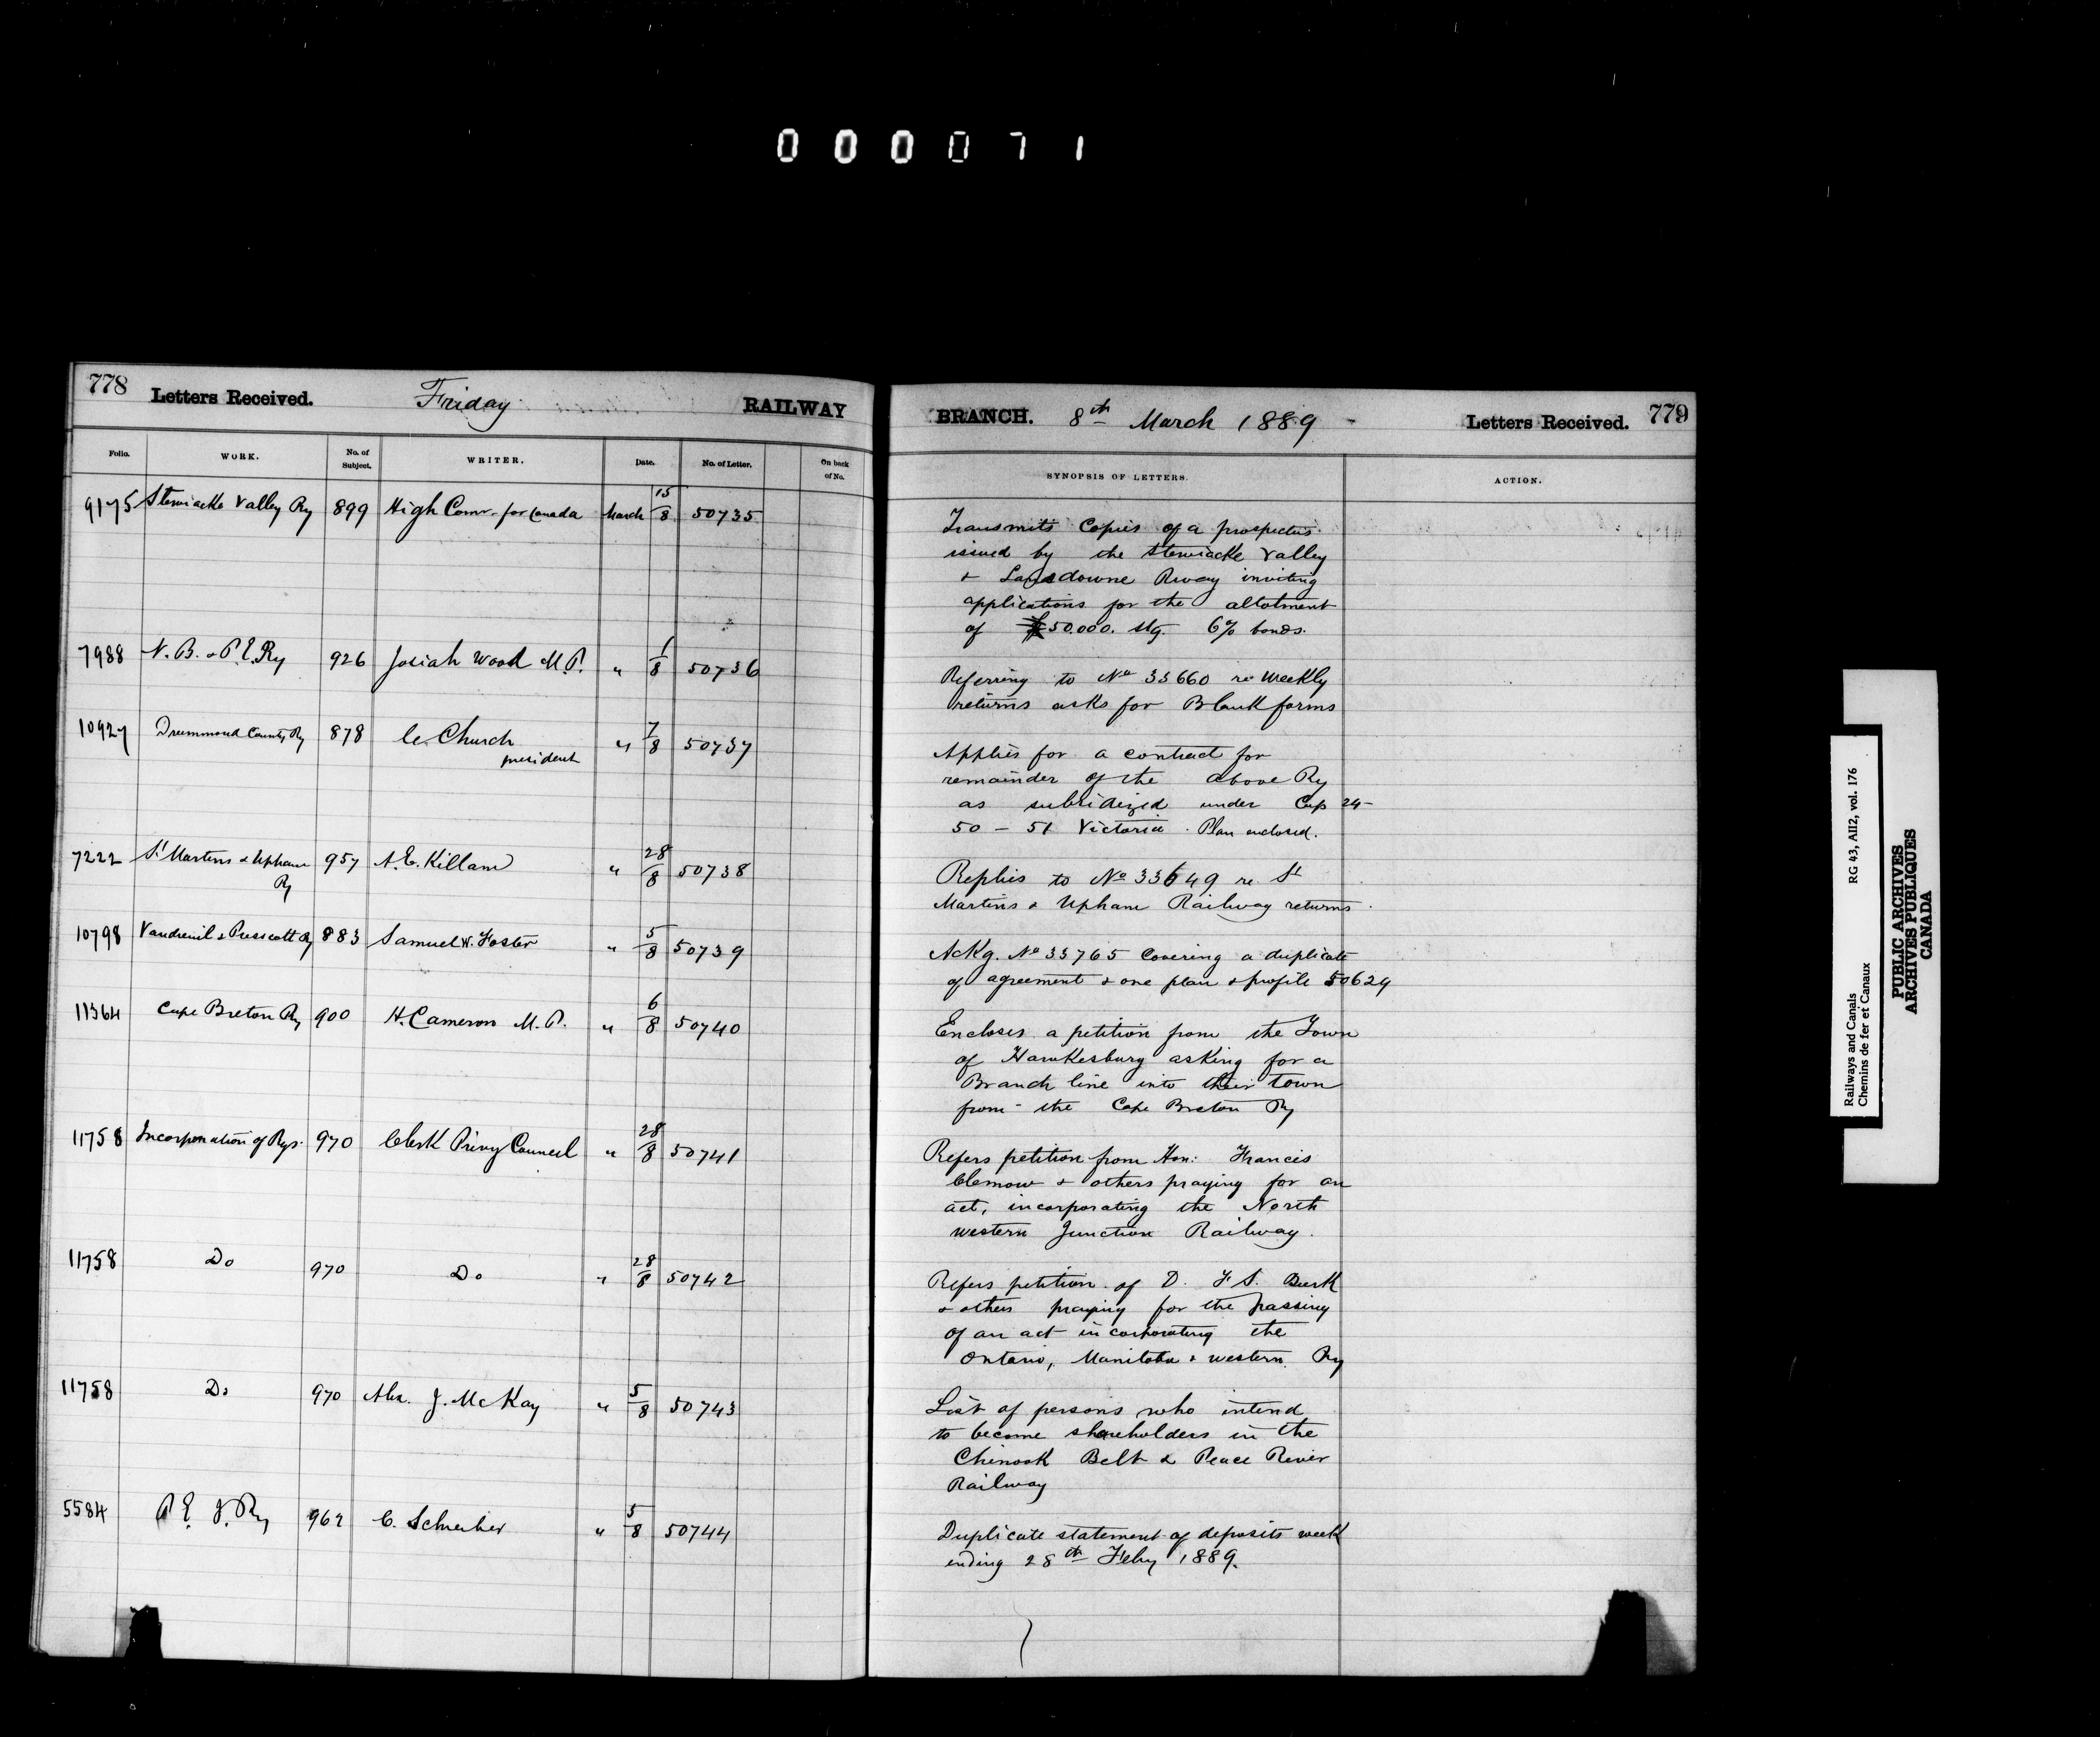 000071
778 Letters Received. Friday RAILWAY
Folio. WORK. No. of Subject. WRITER. Date. No. of Letter. On back of No.
9175 Stewiacke Valley Ry 899 High Comr. for Canada March 15/8 50735
7988 N. B. & P. E. Ry 926 Josiah Wood M. P. " 1/8 50736
10927 Drummond County Ry 878 C. Church " 7/8 50737
president
7222 St Martins & Upham 957 A. E. Killam " 28/8 50738
Ry
10798 Vaudreuil & Prescott Ry 883 Samuel W. Foster " 5/8 50739
11364 Cape Breton Ry 900 H. Cameron M. P. " 6/8 50740
11758 Incorporation of Rys. 970 Clerk Privy Council " 28/8 50741
11758 Do 970 Do " 28/8 50742
11758 Do 970 Alex. J. McKay " 5/8 50743
5584 P. E. I. Ry 962 C. Schreiber " 5/8 50744
BRANCH. 8th March 1889 Letters Received. 779
SYNOPSIS OF LETTERS. ACTION.
Transmits Copies of a prospectus
issued by the Stewiacke Valley
& Lansdowne Rway inviting
applications for the allotment
of £50.000. stg. 6% bonds.
Referring to No 33660 re weekly
returns asks for Blank forms
Applies for a contract for
remainder of the above Ry
as subsidized under Cap 24-
50 - 51 Victoria. Plan enclosed.
Replies to No 33649 re. St
Martins & Upham Railway returns.
Ackg. No 33765 Covering a duplicate
of agreement & one plan & profile 50624
Encloses a petition from the Town
of Hawkesbury asking for a
Branch line into their town
from the Cape Breton Ry
Refers petition from Hon: Francis
Clemow & others praying for an
act, incorporating the North
western Junction Railway.
Refers petition of D. F. S. Burk
& others praying for the passing
of an act incorporating the
Ontario, Manitoba & western Ry
List of persons who intend
to become shareholders in the
Chinook Belt & Peace River
Railway
Duplicate statement of deposits week
ending 28th Feby 1889.
Railways and Canals RG 43, AII2, vol. 176
Chemins de fer et Canaux
PUBLIC ARCHIVES
ARCHIVES PUBLIQUES
CANADA